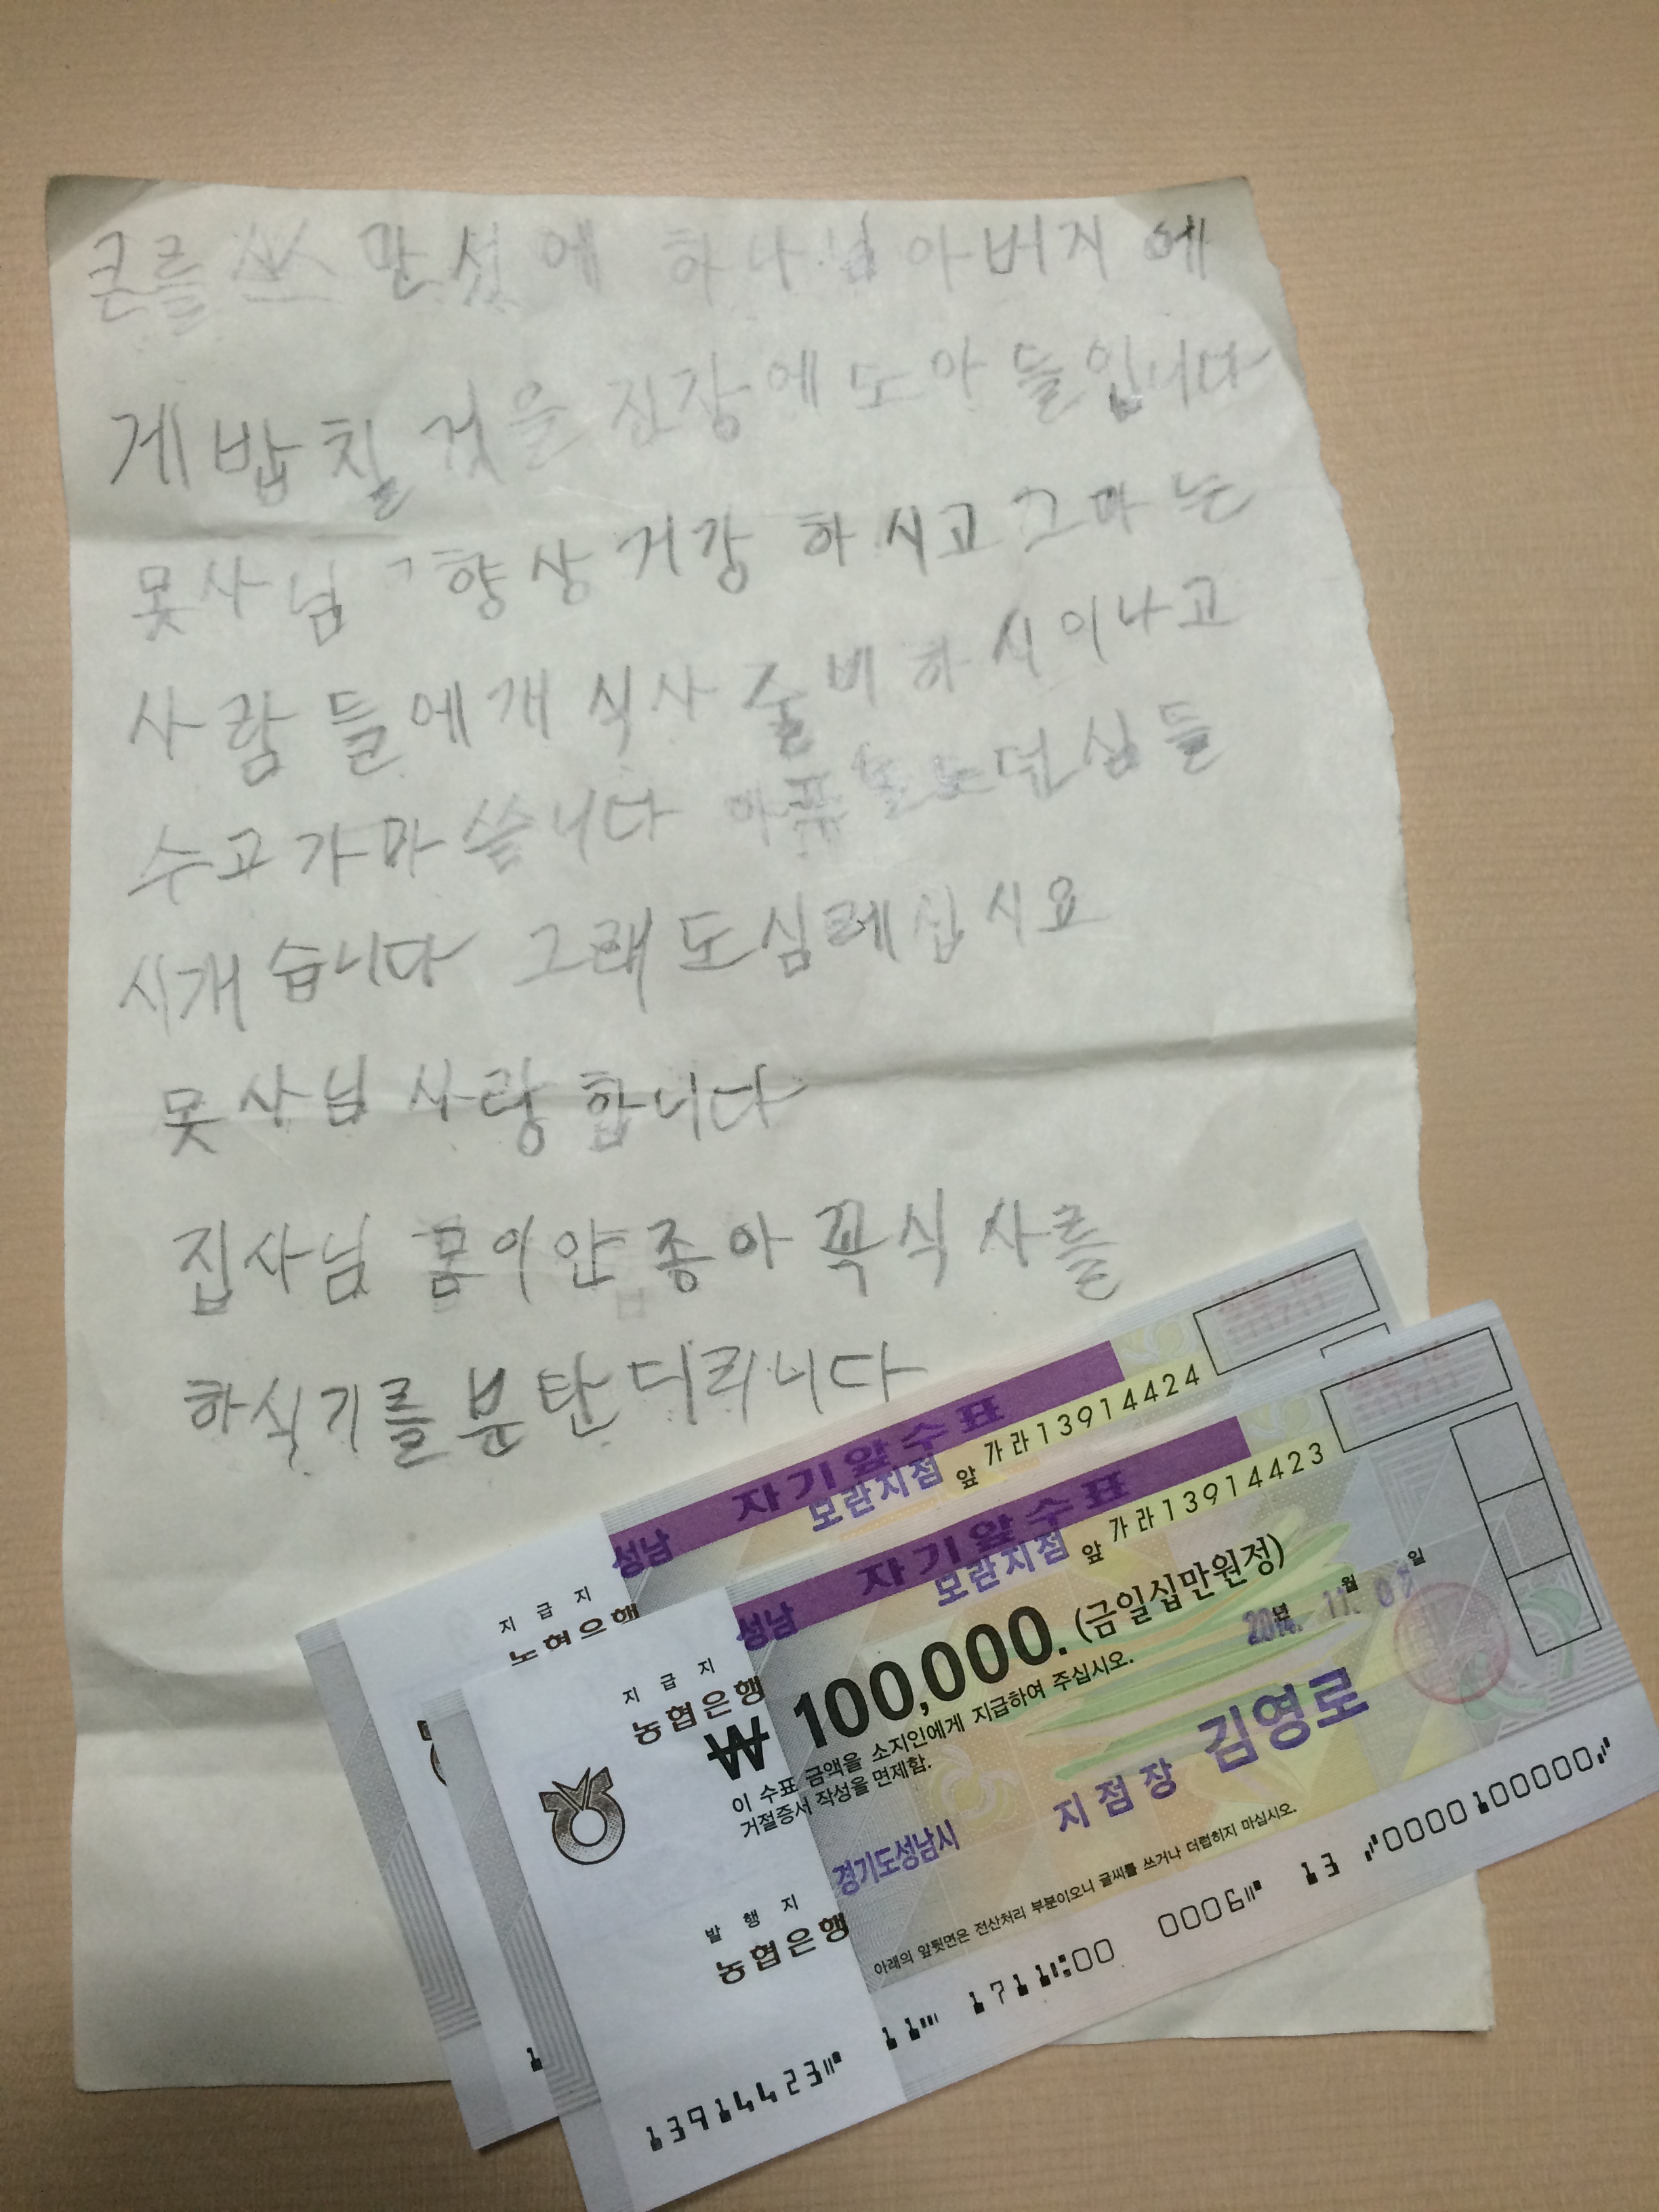 큰를 쓰 만섯에 하나님 아버지에
게 밥칠 것을 진장에 도아들입니다
못사님 향상 거강 하시고 그마는
사람들에개 식사 줄비 하시이나고
수고가 마씀니다
시개습니다 그래도 심레십시요
못사님 사랑합니다
집사님 몸이 안종아 꼭 식사를
하싁기를 분탄 디리니다
자기앞수표
성남 모란지점 앞 가라13914424
지급지
농협은행
자기앞수표
성남 모란지점 앞 가라13914423
지급지
농협은행
₩100,000. (금일십만원정)
이 수표 금액을 소지인에게 지급하여 주십시오.
거절증서 작성을 면제함.
2014년 11월 07일
경기도성남시 지점장 김영로
발행지
농협은행
아래의 앞뒷면은 전산처리 부분이오니 글씨를 쓰거나 더럽히지 마십시오.
13914423 11 1711 00 0006 13 0000100000